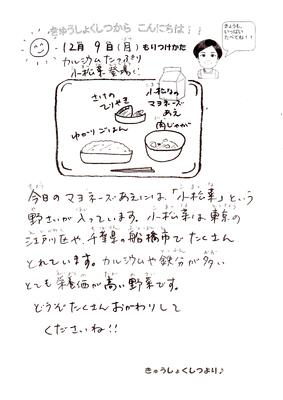 きゅうしょくしつから こんにちは!!
きょうも、
いっぱい
たべてね!!
12月 9日(月) もりつけかた
カルシウムたっぷり
小松菜登場!
さけの
てりやき
小松なの
マヨネーズ
あえ
ゆかりごはん
肉じゃが
今日のマヨネーズあえには「小松菜」という
野さいが入っています。小松菜は東京の
江戸川区や、千葉県の船橋市でたくさん
とれています。カルシウムや鉄分が多い
とても栄養価が高い野菜です。
どうぞたくさんおかわりして
くださいね!!
きゅうしょくしつより♪